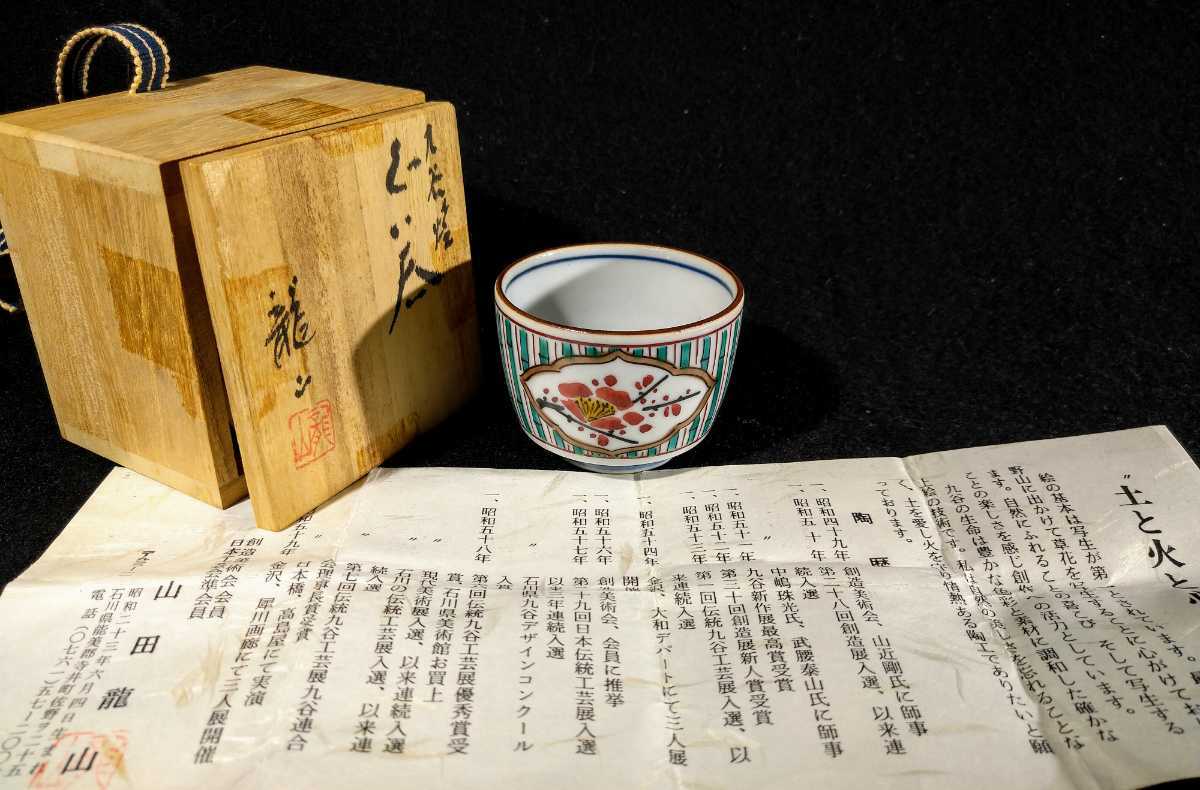 九谷焼
ぐい呑
龍山
龍山
〝土と火と
絵の基本は写生が第一とされています。
野山に出かけて草花を写生することに心がけてお
ます。自然にふれることの喜び、そして写生する
ことの楽しさを感じ創作への活力としています。
九谷の生命は豊かな色彩と素材に調和した確かな
上絵の技術です。私は自然の美しさを忘れることな
く、土を愛し火を守り情熱ある陶工でありたいと願
っております。
陶歴
一、昭和四十九年 創造美術会、山近剛氏に師事
一、昭和五十年 第二十八回創造展入選、以来連
続入選
〃 中嶋珠光氏、武腰泰山氏に師事
一、昭和五十一年 九谷新作展最高賞受賞
一、昭和五十二年 第三十回創造展新人賞受賞
一、昭和五十三年 第一回伝統九谷工芸展入選、以
来連続入選
一、昭和五十四年 金沢、大和デパートにて二人展
開催
一、昭和五十六年 創美術会、会員に推挙
一、昭和五十七年 第十九回日本伝統工芸展入選
以来三年連続入選
〃 石川県九谷デザインコンクール
入賞
一、昭和五十八年 第六回伝統九谷工芸展優秀賞受
賞、石川県美術館お買上
〃 現代美術展入選、以来連続入選
〃 石川の伝統工芸展入選、以来連
続入選
第七回伝統九谷工芸展九谷連合
会理事長賞受賞
五十九年 日本橋、高島屋にて実演
〃 金沢、犀川画廊にて三人展開催
創造美術会会員
日本工芸会準会員
山田龍山
昭和二十三年六月四日生まれ
石川県能美郡寺井町佐野
電話〇七六一五七ー二〇
龍山